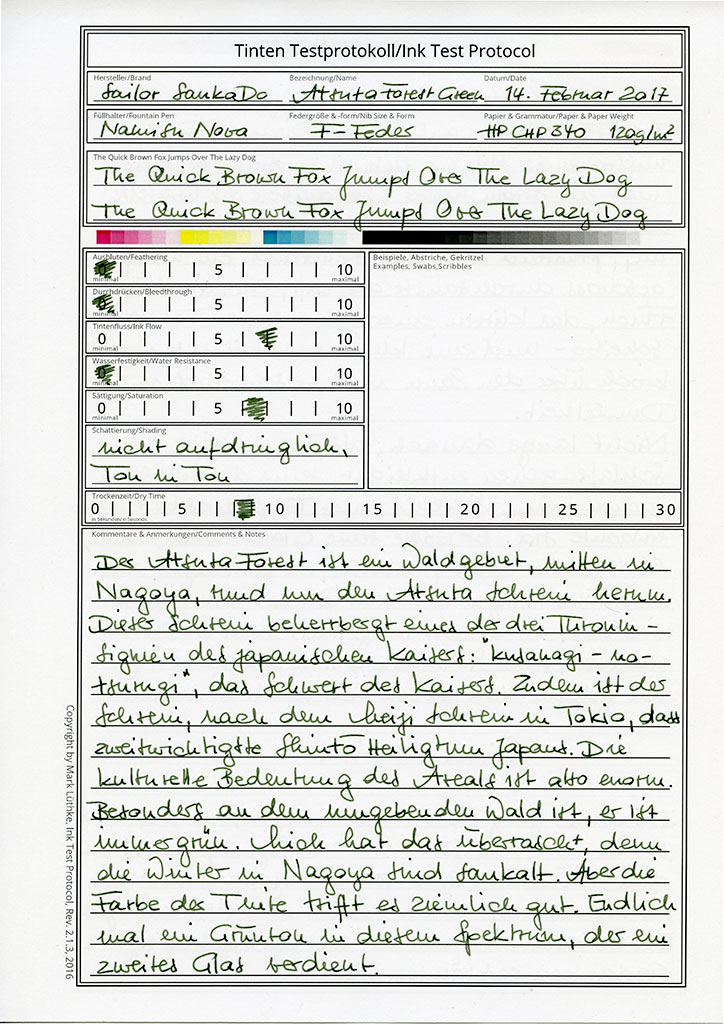 Tinten Testprotokoll/Ink Test Protocol
Hersteller/Brand Bezeichnung/Name Datum/Date
Sailor SankaDo Atsuta Forest Green 14. Februar 2017
Füllhalter/Fountain Pen Federgröße & -form/Nib Size & Form Papier & Grammatur/Paper & Paper Weight
Nahvsh Nova F-Feder HP CHP 340 120g/m²
The Quick Brown Fox Jumps Over The Lazy Dog
The Quick Brown Fox Jumps Over The Lazy Dog
The Quick Brown Fox Jumps Over The Lazy Dog
Ausbluten/Feathering
0 5 10
minimal maximal
Durchdrücken/Bleedthrough
0 5 10
minimal maximal
Tintenfluss/Ink Flow
0 5 10
minimal maximal
Wasserfestigkeit/Water Resistance
0 5 10
minimal maximal
Sättigung/Saturation
0 5 10
minimal maximal
Beispiele, Abstriche, Gekritzel
Examples, Swabs,Scribbles
Schattierung/Shading
nicht aufdringlich,
Ton in Ton
Trockenzeit/Dry Time
0 5 10 15 20 25 30
in Sekunden/in Seconds
Kommentare & Anmerkungen/Comments & Notes
Der Atsuta Forest ist ein Waldgebiet, mitten in
Nagoya, rund um den Atsuta Schrein herum.
Dieser Schrein beherrbergt eines der drei Thronin-
signien des japanischen Kaisers: "kusanagi-no-
tsurugi", das Schwert des Kaisers. Zudem ist der
Schrein, nach dem Meiji Schrein in Tokio, dass
zweitwichtigste Shinto Heiligtum Japans. Die
kulturelle Bedeutung des Areals ist also enorm.
Besonders an dem umgebenden Wald ist, er ist
immergrün. Mich hat das überrascht, denn
die Winter in Nagoya sind saukalt. Aber die
Farbe der Tinte trifft es ziemlich gut. Endlich
mal ein Grünton in diesem Spektrum, der ein
zweites Glas verdient.
Copyright by Mark Lüthke, Ink Test Protocol, Rev. 2.1.3, 2016